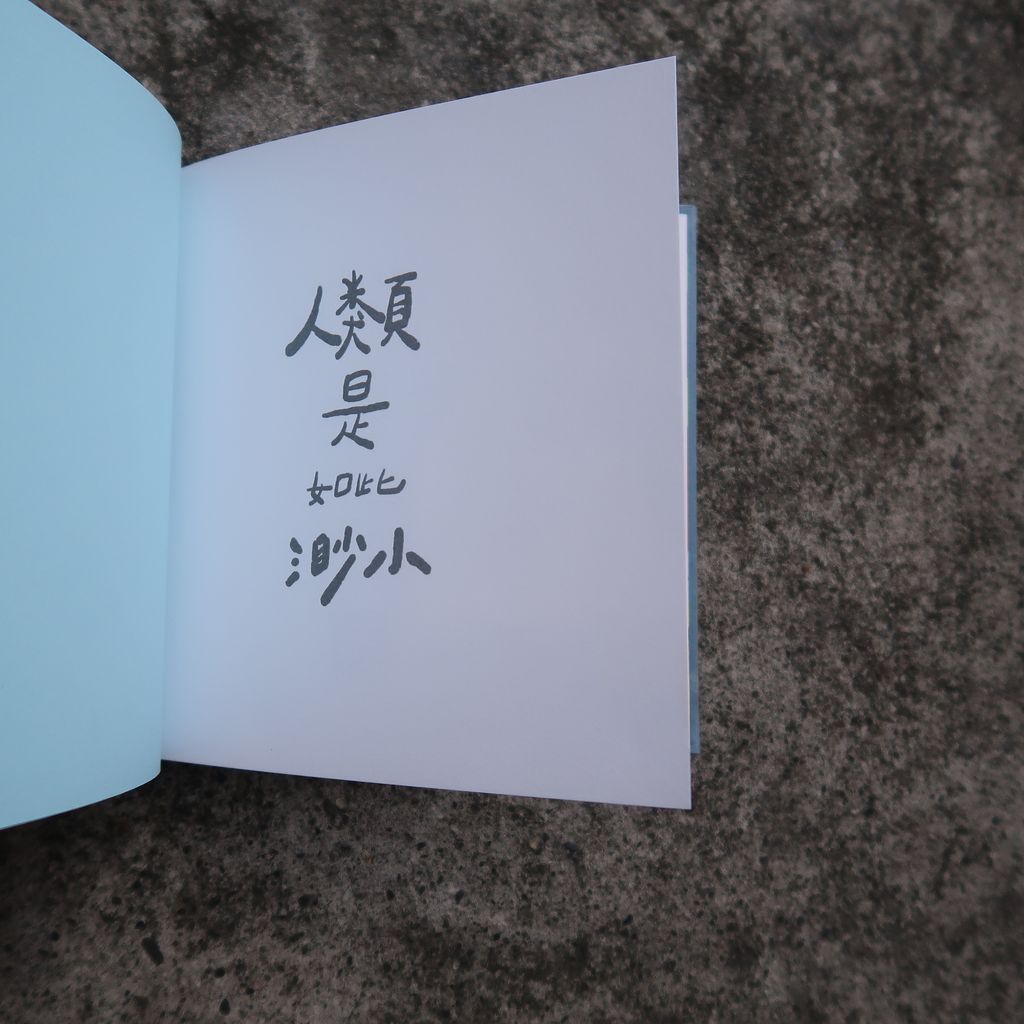 人類
是
如此
渺小